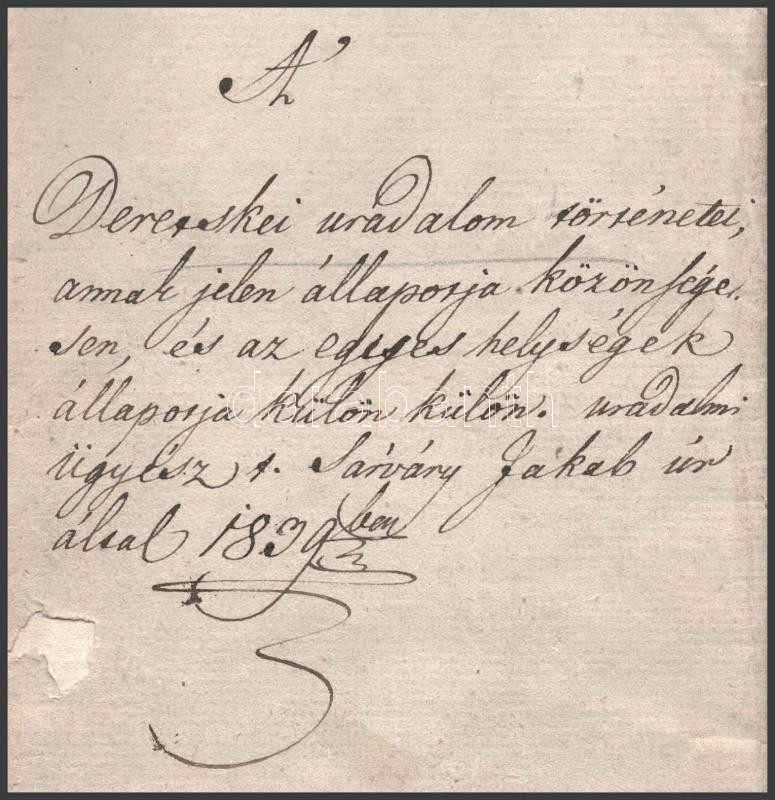 A'
Deretskei uradalom történetei,
annak jelen állapotja közönsége-
sen, és az egyes helységek
állapotja külön külön. uradalmi
ügyész t. Sárváry Jakab úr
által 1839ben
darabanth